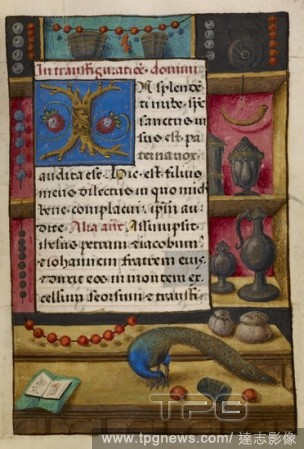 In transfiguratiōe · domini
N splende
ti nube · sp̄s
sanctus in
sus est · pa
terna vox
audita est · Hic est filius
meus dilectus in quo mich
bene complacui · ipsū au
dite · Alia añt · Assumpsit
ihesus petrum · et iacobum
et iohannem fratrem eius
et duxit eos in montem ex
celsum seorsum et transfi
TPG
www.tpgnews.com/達志影像